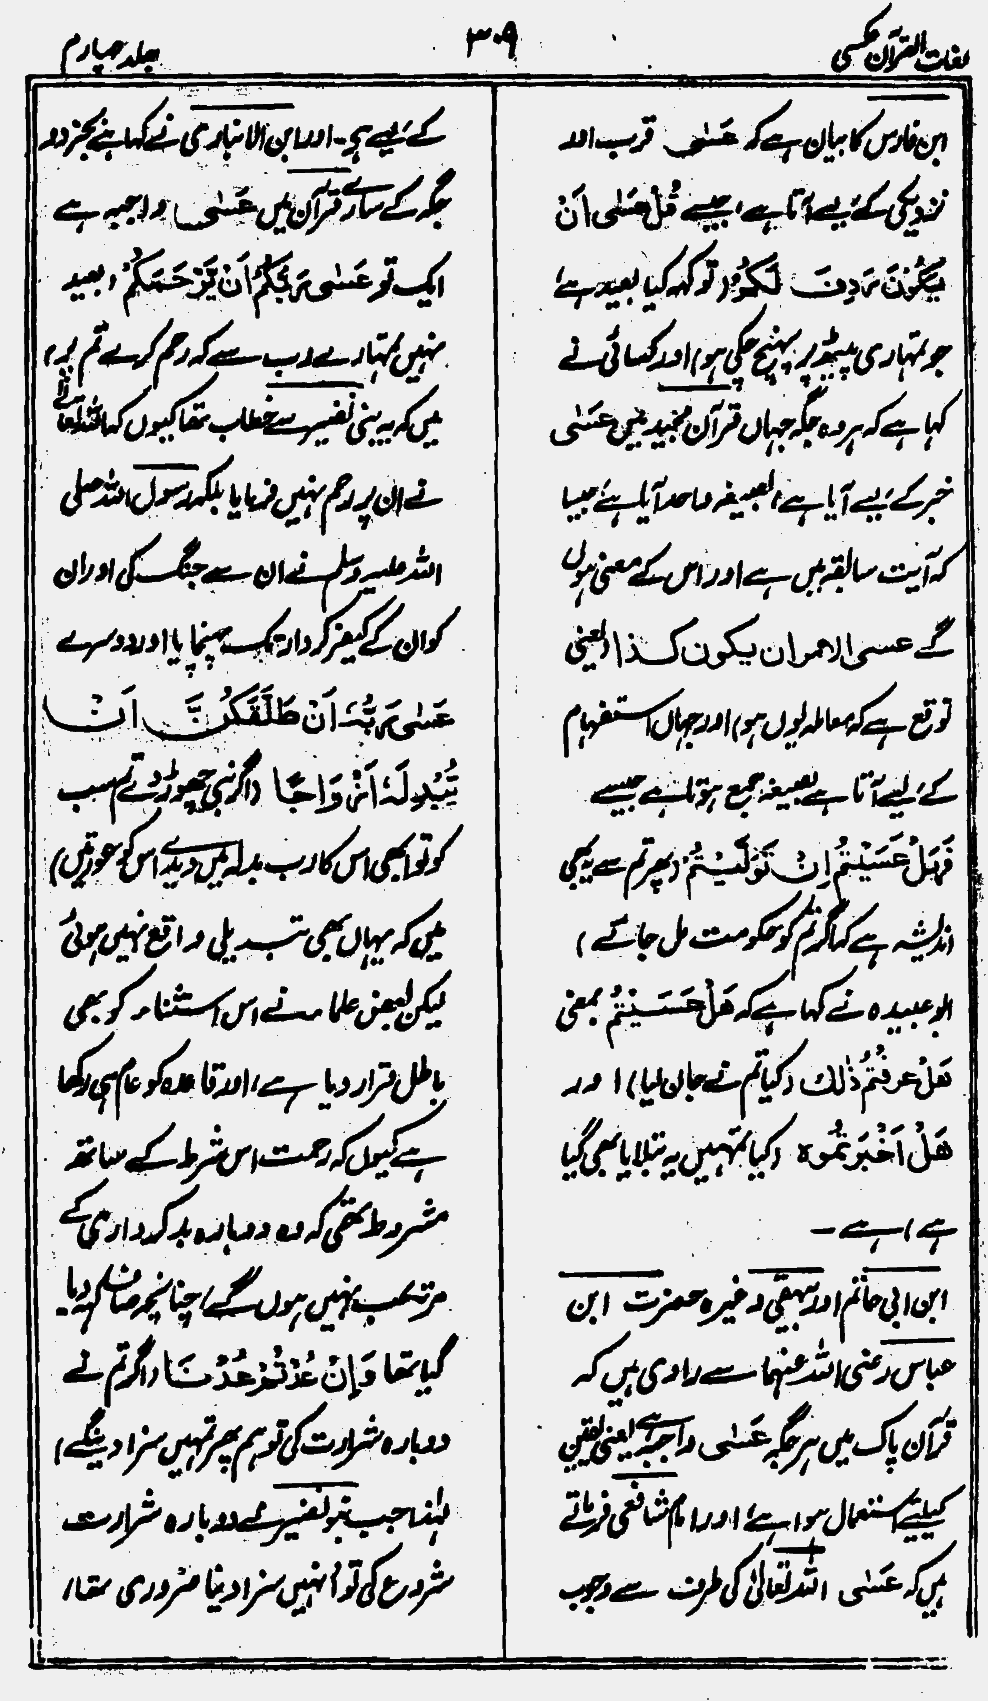 لغات القرآن عکسی
۳۰۹
جلد چہارم
ابن فارس کا بیان ہے کہ عَسٰی قرب اور
نزدیکی کے لیے آتا ہے، جیسے قُلْ عَسٰی اَنْ
یَکُوْنَ رَدِفَ لَکُمْ (تو کہہ کیا بعید ہے
جو تمہاری پیٹھ پر پہنچ چکی ہو) اور کسائی نے
کہا ہے کہ ہر وہ جگہ جہاں قرآن مجید میں عَسٰی
خبر کے لیے آیا ہے، بصیغہ واحد آیا ہے، جیسا
کہ آیت سابقہ میں ہے اور اس کے معنی ہوں
گے عسی الامر ان یکون کذا (یعنی
توقع ہے کہ معاملہ یوں ہو) اور جہاں استفہام
کے لیے آتا ہے بصیغہ جمع ہوتا ہے جیسے
فَہَلْ عَسَیْتُمْ اِنْ تَوَلَّیْتُمْ (پھر تم سے یہ بھی
اندیشہ ہے کہ اگر تم کو حکومت مل جائے)
ابو عبیدہ نے کہا ہے کہ ھَلْ عَسَیْتُمْ بمعنی
ھَلْ عَرَفْتُمْ ذٰلِكَ (کیا تم نے جان لیا) اور
ھَلْ اَخْبَرْتُمُوہ (کیا تمہیں یہ بتلایا بھی گیا
ہے) ہے ۔
ابن ابی حاتم اور بیہقی وغیرہ حضرت ابن
عباس رضی اللہ عنہما سے راوی ہیں کہ
قرآن پاک میں ہر جگہ عَسٰی واجب ہے یعنی یقین
کیلئے استعمال ہوا ہے، اور امام شافعی فرماتے
ہیں کہ عَسٰی اللہ تعالیٰ کی طرف سے وجوب
کے لیے ہے۔ اور ابن الانباری نے کہا ہے بجز دو
جگہ کے سارے قرآن میں عَسٰی واجب ہے
ایک تو عَسٰی رَبُّکُمْ اَنْ یَّرْحَمَکُمْ (بعید
نہیں تمہارے رب سے کہ رحم کرے تم پر)
میں کہ یہ بنی نضیر سے خطاب تھا کیوں کہ اللہ تعالیٰ
نے ان پر رحم نہیں فرمایا بلکہ رسول اللہ صلی
اللہ علیہ وسلم نے ان سے جنگ کی اور ان
کو ان کے کیفر کردار تک پہنچایا اور دوسرے
عَسٰی رَبُّہٗ اَنْ طَلَّقَکُنَّ اَنْ
یُّبْدِلَہٗ اَزْوَاجًا (اگر نبی چھوڑ دے تم سب
کو تو ابھی اس کا رب بدلہ میں دیدے اس کو عورتیں)
میں کہ یہاں بھی تبدیلی واقع نہیں ہوئی
لیکن بعض علماء نے اس استثناء کو بھی
باطل قرار دیا ہے، اور قاعدہ کو عام ہی رکھا
ہے کیوں کہ رحمت اس شرط کے ساتھ
مشروط تھی کہ وہ دوبارہ بد کرداری کے
مرتکب نہیں ہوں گے، چنانچہ صاف کہہ دیا
گیا تھا وَاِنْ عُدْتُّمْ عُدْنَا (اگر تم نے
دوبارہ شرارت کی تو ہم پھر تمہیں سزا دینگے)
لہٰذا جب بنو نضیر نے دوبارہ شرارت
شروع کی تو اُنہیں سزا دینا ضروری تھا،